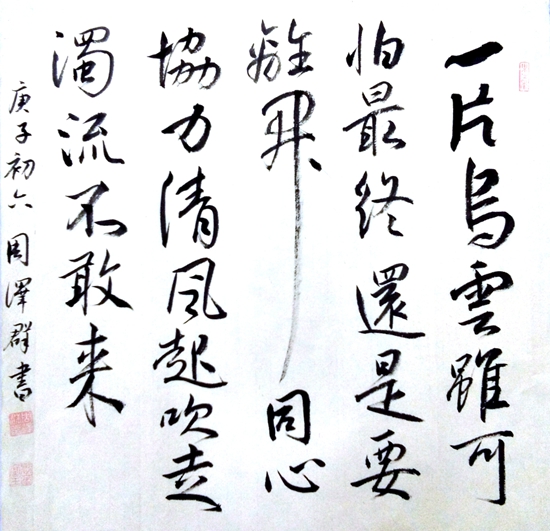 一片烏雲雖可
怕最終還是要
離開同心
協力清风起吹走
濁流不敢来
庚子初六周澤群書